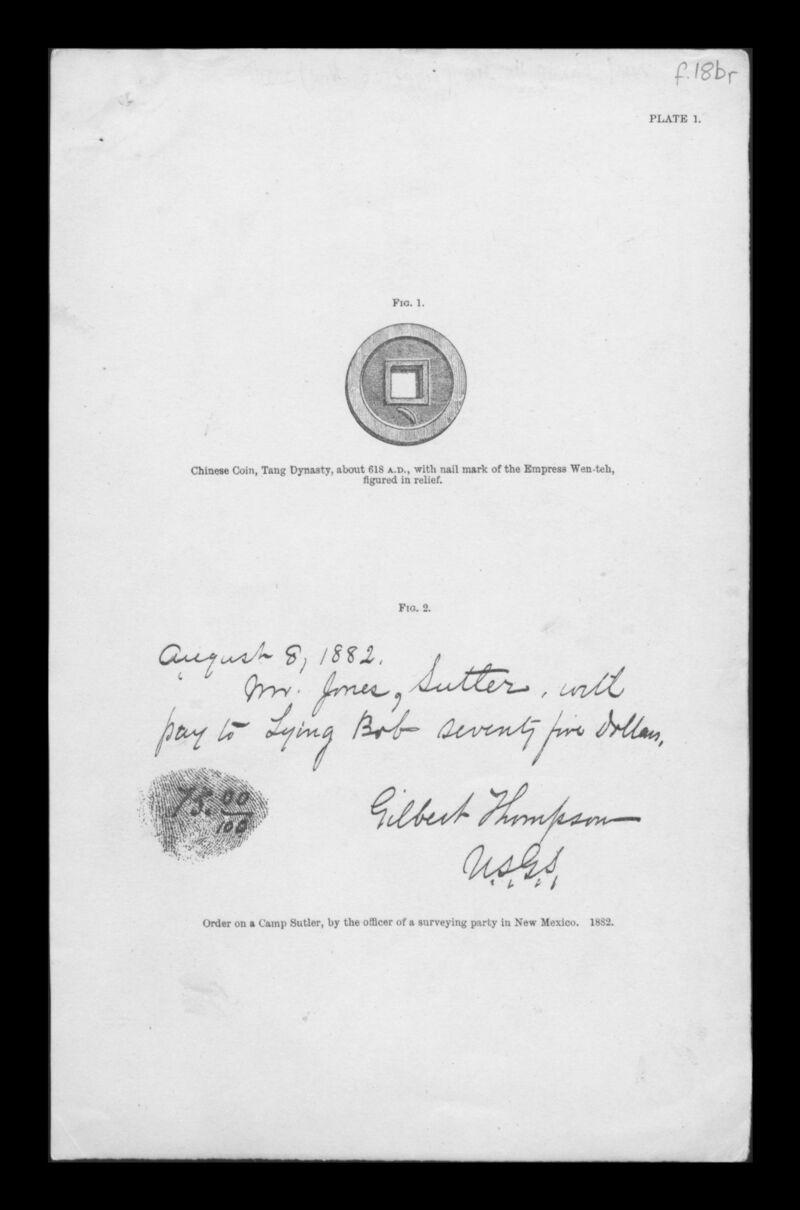 f.18br
PLATE 1.
FIG. 1.
Chinese Coin, Tang Dynasty, about 618 A.D., with nail mark of the Empress Wen-teh,
figured in relief.
FIG. 2.
August 8, 1882.
Mr. Jones, Sutler, will
pay to Lying Bob seventy five Dollars.
75.00/100
Gilbert Thompson
U.S.G.S.
Order on a Camp Sutler, by the officer of a surveying party in New Mexico. 1882.